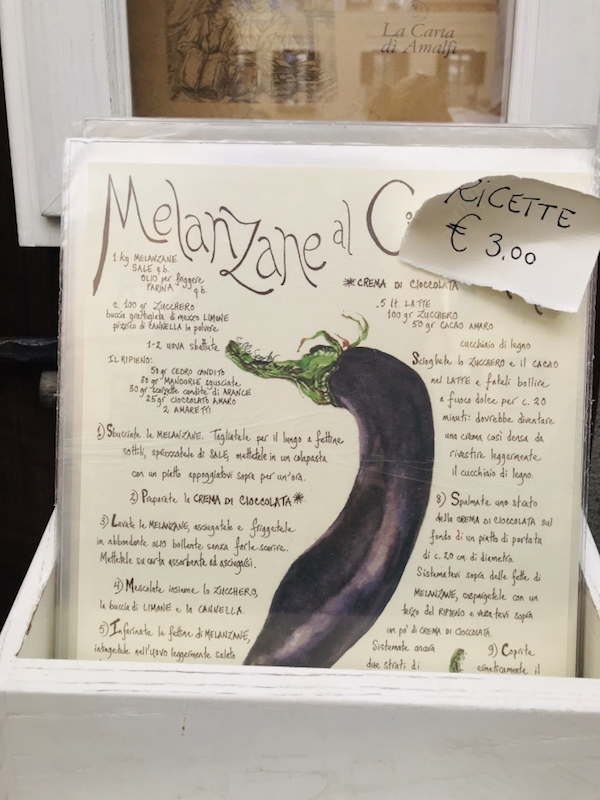 La Carta
di Amalfi
Melanzane al
RICETTE
€ 3,00
1 kg MELANZANE
SALE q.b.
OLIO per friggere
FARINA q.b.
c. 100 gr ZUCCHERO
buccia grattugiata di mezzo LIMONE
pizzico di CANNELLA in polvere
1-2 UOVA sbattute
IL RIPIENO:
50 gr CEDRO CANDITO
30 gr MANDORLE sgusciate
30 gr scorzette candite di ARANCE
25 gr CIOCCOLATO AMARO
2 AMARETTI
1) Sbucciate le MELANZANE. Tagliatele per il lungo a fettine
sottili, spruzzatele di SALE, mettetele in un colapasta
con un piatto appoggiatovi sopra per un'ora.
2) Preparate la CREMA DI CIOCCOLATA*
3) Lavate le MELANZANE, asciugatele e friggetele
in abbondante OLIO bollente senza farle scurire.
Mettetele su carta assorbente ad asciugarsi.
4) Mescolate insieme lo ZUCCHERO,
la buccia di LIMONE e la CANNELLA.
5) Infarinate le fettine di MELANZANE,
intingetele nell'uovo leggermente salato
*CREMA DI CIOCCOLATA
.5 lt. LATTE
100 gr ZUCCHERO
50 gr CACAO AMARO
cucchiaio di legno
Sciogliete lo ZUCCHERO e il CACAO
nel LATTE e fateli bollire
a fuoco dolce per c. 20
minuti: dovrebbe diventare
una crema così densa da
rivestire leggermente
il cucchiaio di legno.
8) Spalmate uno strato
della CREMA DI CIOCCOLATA sul
fondo di un piatto di portata
di c. 20 cm. di diametro.
Sistematevi sopra delle fette di
MELANZANE, cospargetele con un
terzo del RIPIENO e versatevi sopra
un po' di CREMA DI CIOCCOLATA.
Sistemate ancora
due strati di
9) Coprite
ermeticamente il